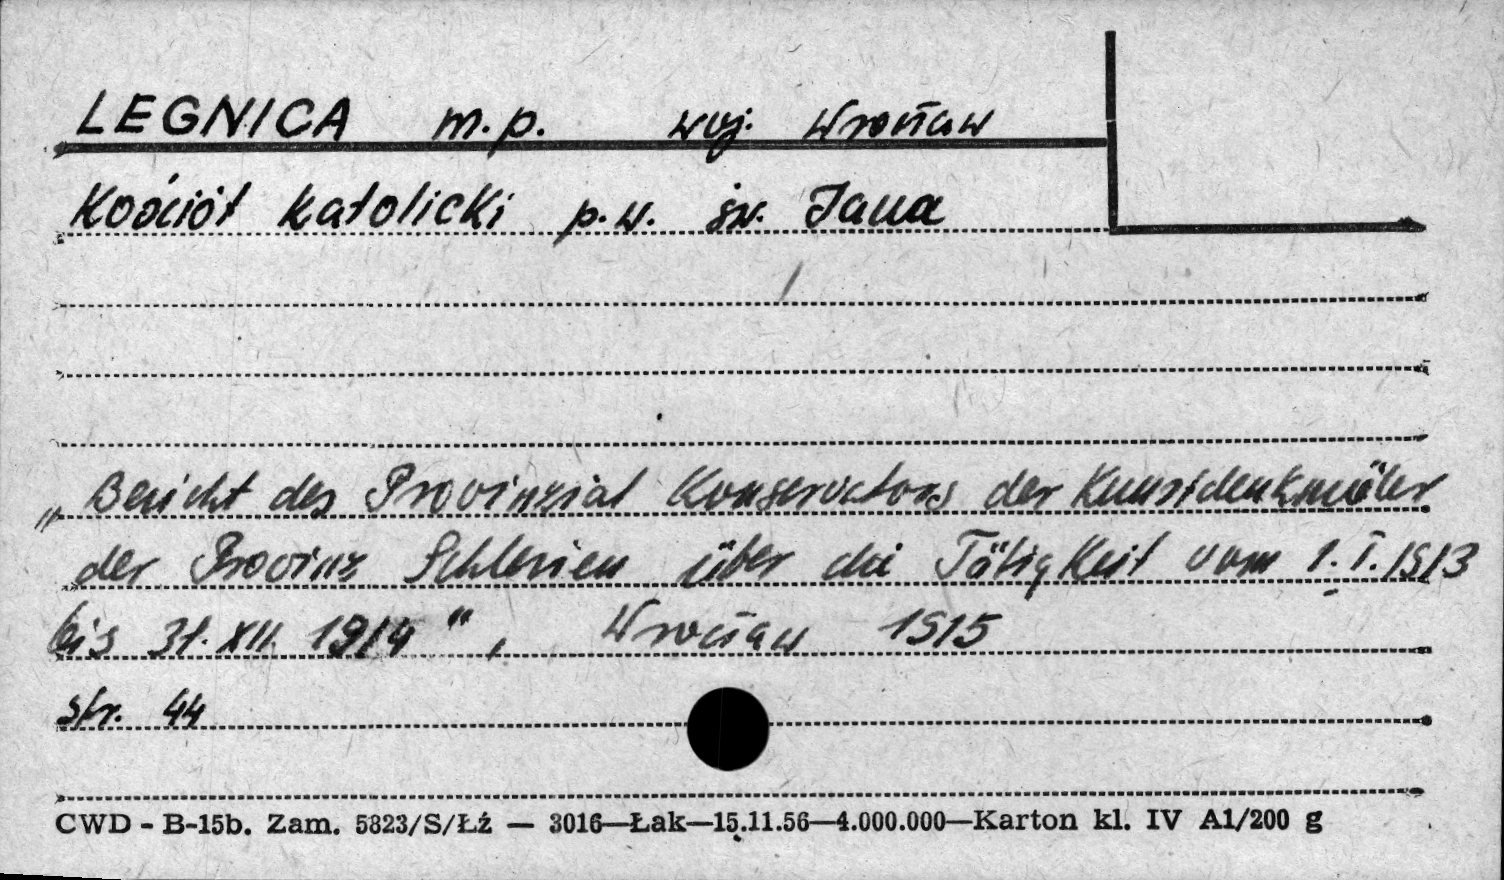 LEGNICA m.p. woj. Wrocław
Kościół katolicki p.w. św. Jana
„Bericht des Provinzial Konservators der Kunstdenkmäler
der Provinz Schlesien über die Tätigkeit vom 1.I.1913
bis 31.XII.1914", Wrocław 1915
str. 44
CWD - B-15b. Zam. 5823/S/Łż — 3016—Łak—15.11.56—4.000.000—Karton kl. IV A1/200 g